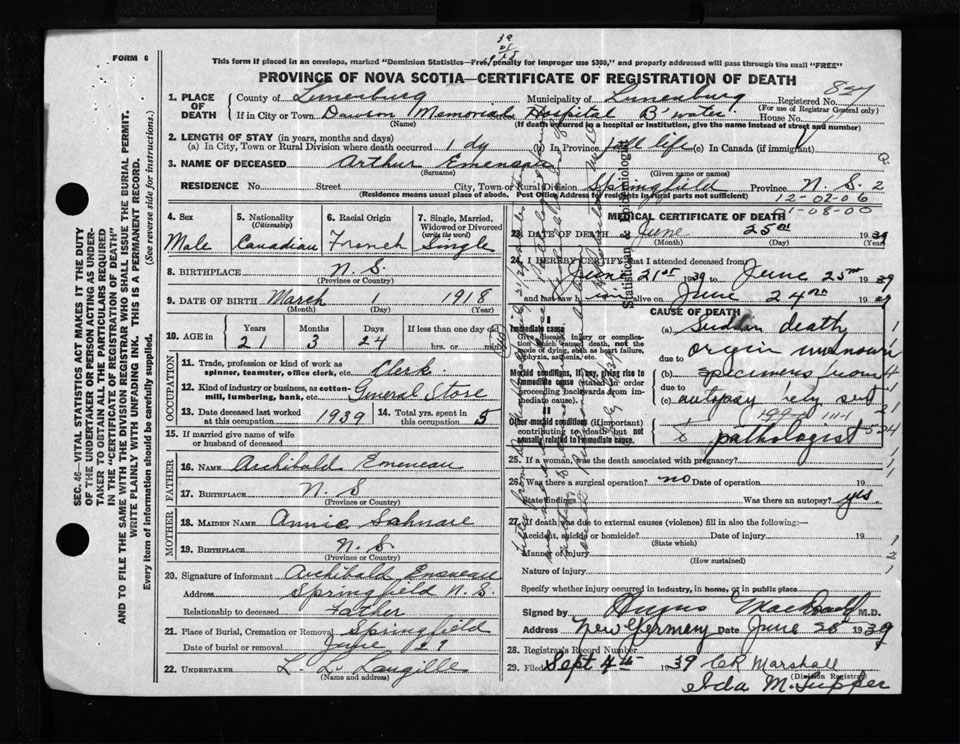 39
FORM 6
This form if placed in an envelope, marked "Dominion Statistics—Free, penalty for improper use $300," and properly addressed will pass through the mail "FREE"
PROVINCE OF NOVA SCOTIA—CERTIFICATE OF REGISTRATION OF DEATH
827
1. PLACE OF DEATH County of Lunenburg Municipality of Lunenburg Registered No.
(For use of Registrar General only)
If in City or Town Dawson Memorial Hospital B'water House No.
(Name) (If death occurred in a hospital or institution, give the name instead of street and number)
2. LENGTH OF STAY (in years, months and days)
(a) In City, Town or Rural Division where death occurred 1 dy (b) In Province all life (c) In Canada (if immigrant)
3. NAME OF DECEASED Arthur Emeneau
(Surname) (Given name or names)
RESIDENCE No. Street City, Town or Rural Division Springfield Province N.S. 2
(Residence means usual place of abode. Post Office Address for residents in rural parts not sufficient)
12-02-06
1-08-00
4. Sex Male
5. Nationality (Citizenship) Canadian
6. Racial Origin French
7. Single, Married, Widowed or Divorced (write the word) Single
8. BIRTHPLACE N.S.
(Province or Country)
9. DATE OF BIRTH March 1 1918
(Month) (Day) (Year)
10. AGE in Years Months Days If less than one day old
21 3 24 hrs. or min.
OCCUPATION
11. Trade, profession or kind of work as spinner, teamster, office clerk, etc. Clerk
12. Kind of industry or business, as cotton-mill, lumbering, bank, etc. General Store
13. Date deceased last worked at this occupation 1939
14. Total yrs. spent in this occupation 5
15. If married give name of wife or husband of deceased
FATHER
16. NAME Archibald Emeneau
17. BIRTHPLACE N.S
(Province or Country)
MOTHER
18. MAIDEN NAME Annie Sahnare
19. BIRTHPLACE N.S.
(Province or Country)
20. Signature of informant Archibald Emeneau
Address Springfield N.S.
Relationship to deceased Father
21. Place of Burial, Cremation or Removal Springfield
Date of burial or removal June 27
22. UNDERTAKER L. L. Langille
(Name and address)
MEDICAL CERTIFICATE OF DEATH
23. DATE OF DEATH June 25th 1939
(Month) (Day) (Year)
24. I HEREBY CERTIFY that I attended deceased from
June 21st 1939 to June 25th 1939
and last saw h im alive on June 24th 1939
CAUSE OF DEATH
I
Immediate cause
Give disease, injury or complication which caused death, not the mode of dying, such as heart failure, asphyxia, asthenia, etc.
(a) Sudden death
due to origin unknown
Morbid conditions, if any, giving rise to immediate cause (stated in order proceeding backwards from immediate cause).
(b) specimens from
due to
(c) autopsy being sent
II
Other morbid conditions (if important) contributing to death but not causally related to immediate cause.
pathologist
25. If a woman, was the death associated with pregnancy?
26. Was there a surgical operation? no Date of operation 19
State findings Was there an autopsy? yes.
27. If death was due to external causes (violence) fill in also the following:—
Accident, suicide or homicide? Date of injury 19
(State which)
Manner of injury
(How sustained)
Nature of injury
Specify whether injury occurred in industry, in home, or in public place
Signed by M.D.
Address New Germany Date June 28th 1939
28. Registrar's Record Number
29. Filed Sept 4th 1939 CR Marshall
(Division Registrar)
Ida M. Tupper
Statistician & Epidemiologist
SEC. 46—VITAL STATISTICS ACT MAKES IT THE DUTY
OF THE UNDERTAKER OR PERSON ACTING AS UNDERTAKER TO OBTAIN ALL THE PARTICULARS REQUIRED
IN THE "CERTIFICATE OF REGISTRATION OF DEATH"
AND TO FILE THE SAME WITH THE DIVISION REGISTRAR WHO SHALL ISSUE THE BURIAL PERMIT.
WRITE PLAINLY WITH UNFADING INK. THIS IS A PERMANENT RECORD.
Every item of information should be carefully supplied. (See reverse side for instructions.)